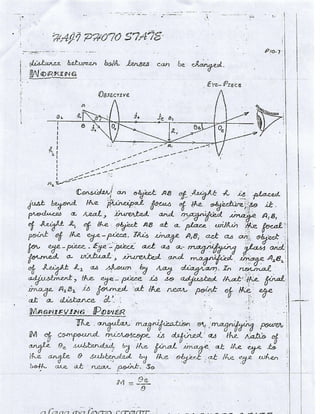 HAJI PHOTO STATE
P.NO.7
distance between both lenses can be changed.
WORKING
OBJECTIVE
EYE-PIECE
Consider an object AB of height h is placed
just beyond the principal focus of the objective, so it
produces a real, inverted and magnified image A₁B₁
of height h₁ of the object AB at a place within the focal
point of the eye-piece. This image A₁B₁ act as an object
for eye-piece. Eye-piece act as a magnifying glass and
formed a virtual, inverted and magnified image A₂B₂
of height h₂ as shown by ray diagram. In normal
adjustment, the eye-piece is so adjusted that the final
image A₂B₂ is formed at the near point of the eye
at a distance 'd'.
MAGNIFYING POWER
The angular magnification or magnifying power
M of compound microscope is defined as the ratio of
angle θ₂ subtended by the final image at the eye to
the angle θ subtended by the object at the eye when
both are at near point. So
M = θ₂/θ